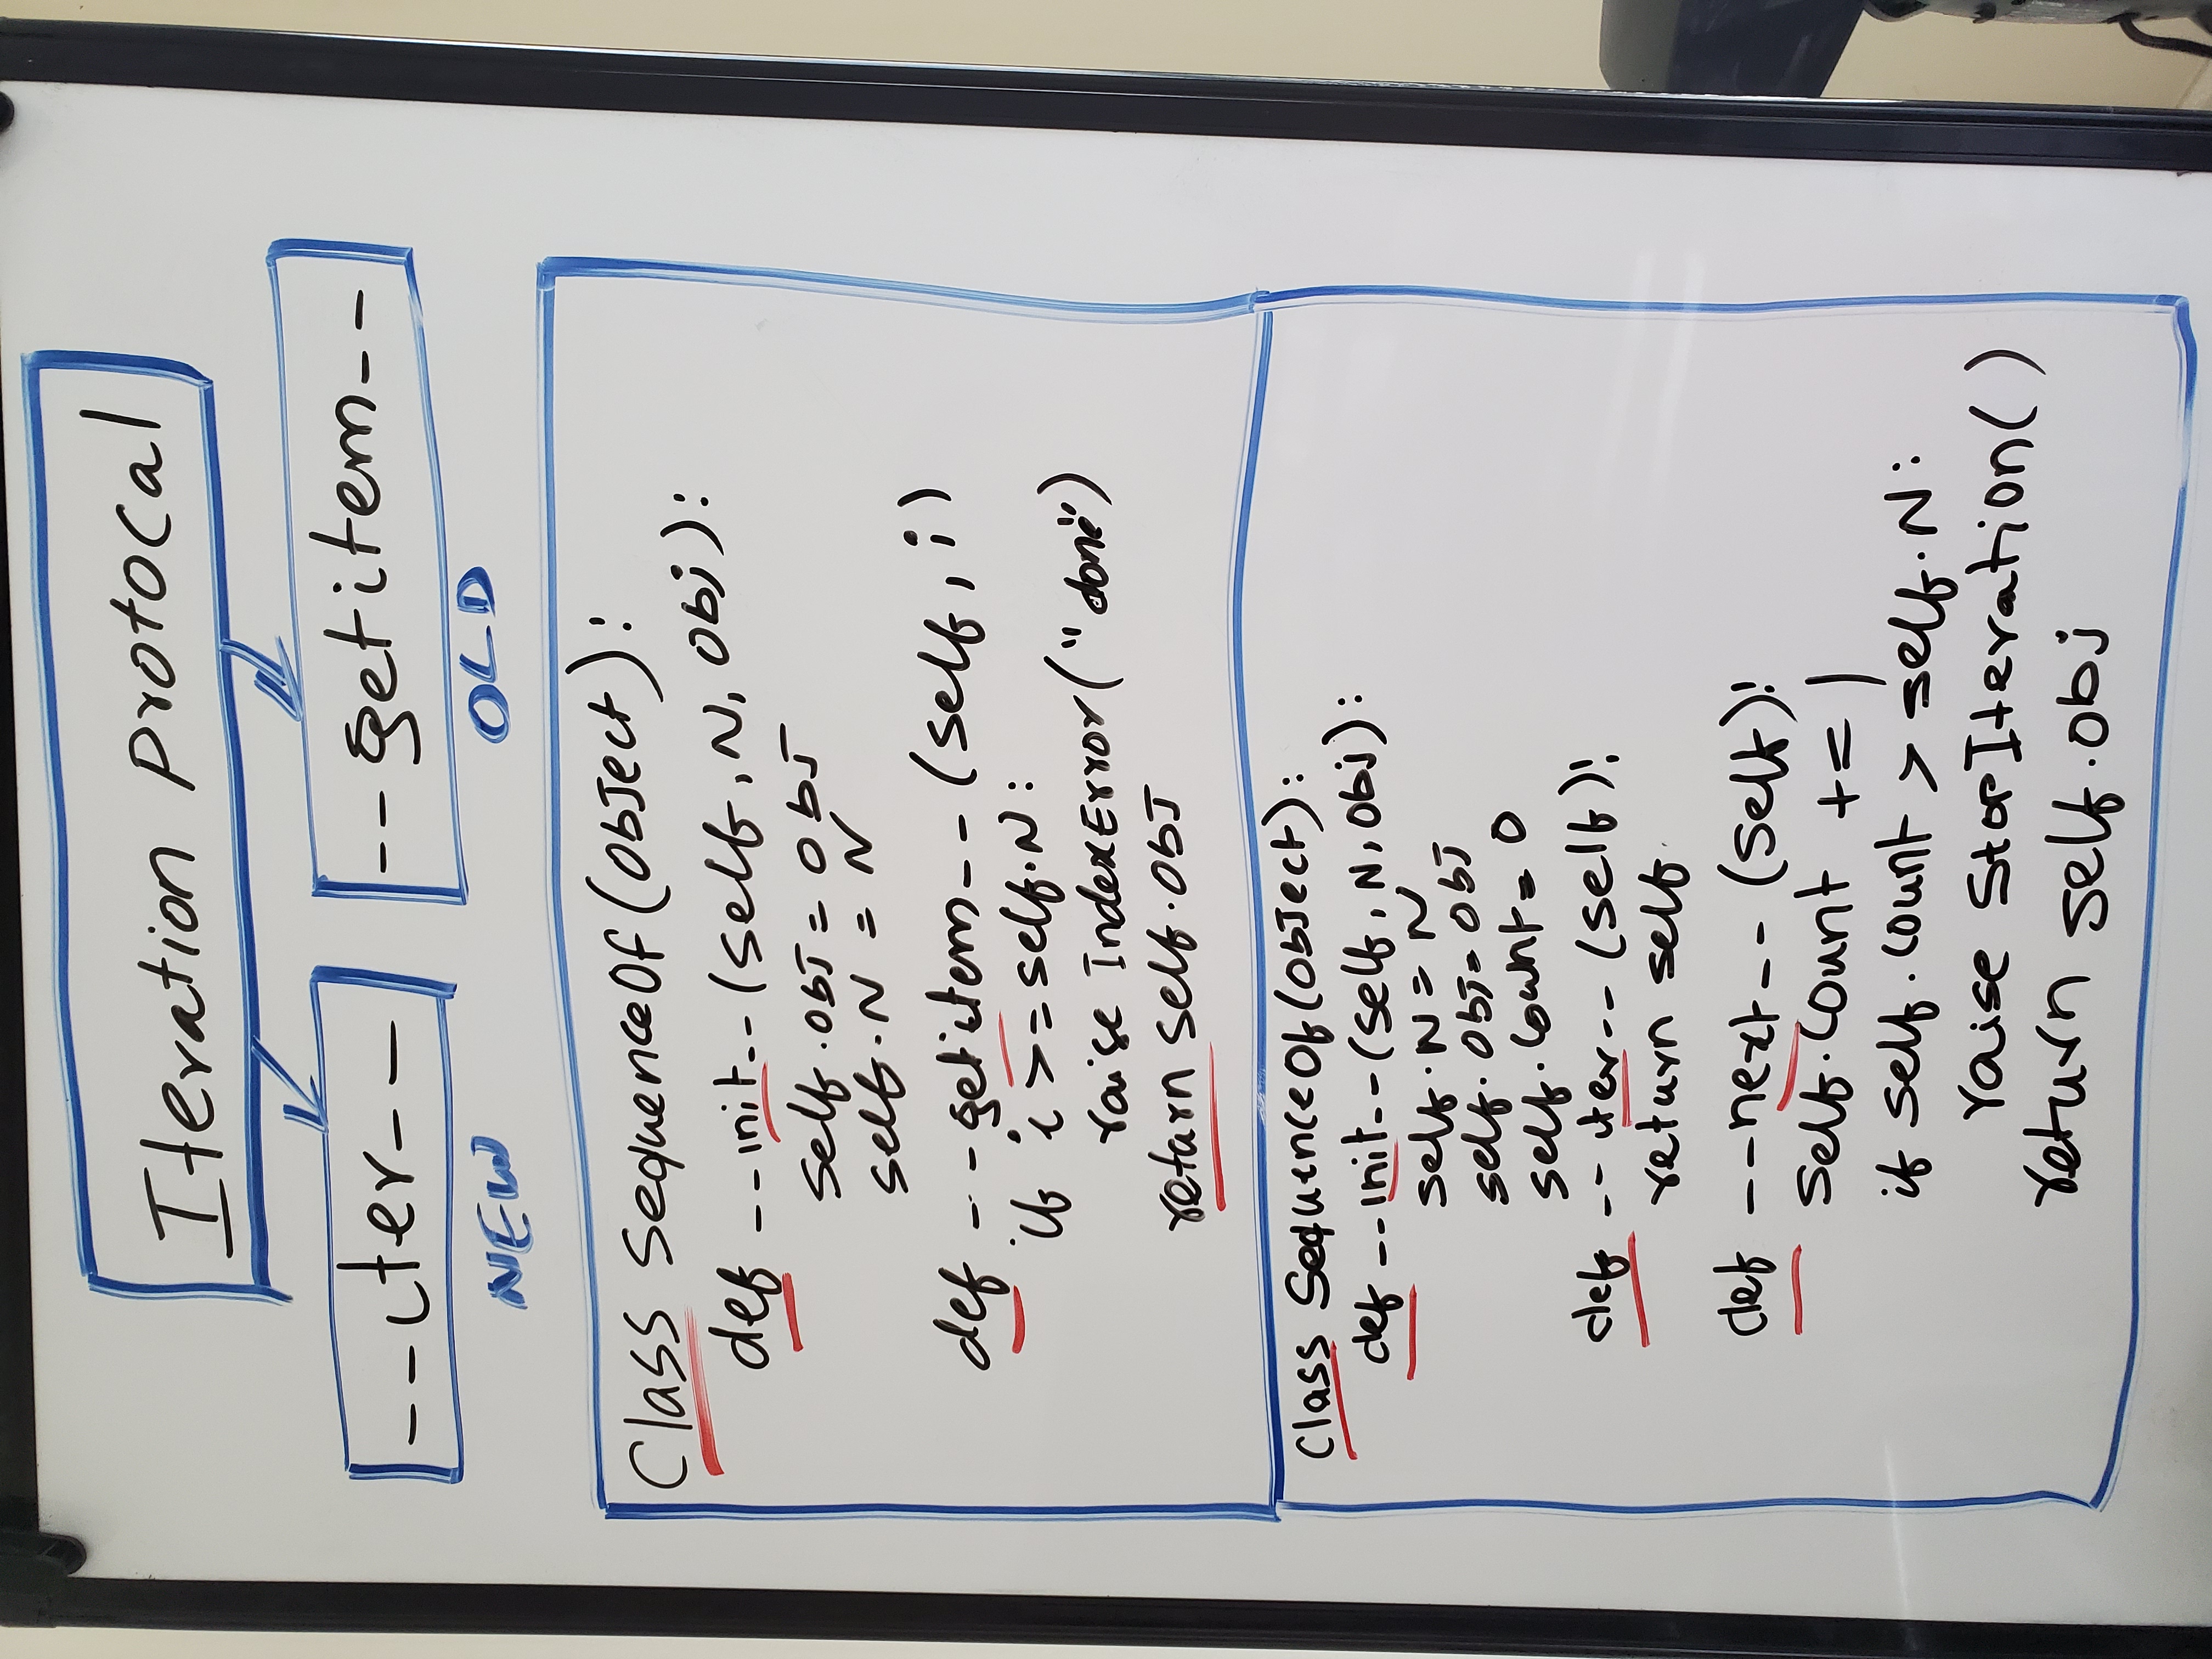 Iteration Protocal
--iter-- --getitem--
NEW OLD
Class SequenceOf(ObJect):
def --init--(self, N, Obj):
self.obJ = obJ
self.N = N
def --getitem--(self, i)
if i >= self.N:
raise IndexError("done")
return self.ObJ
Class SequenceOf(ObJect):
def --init--(self, N, Obj):
self.N = N
self.ObJ = ObJ
self.Count = 0
def --iter--(self)!
return self
def --next--(Self)!
Self.Count += 1
if self.Count > self.N:
raise StopIteration()
return self.obj